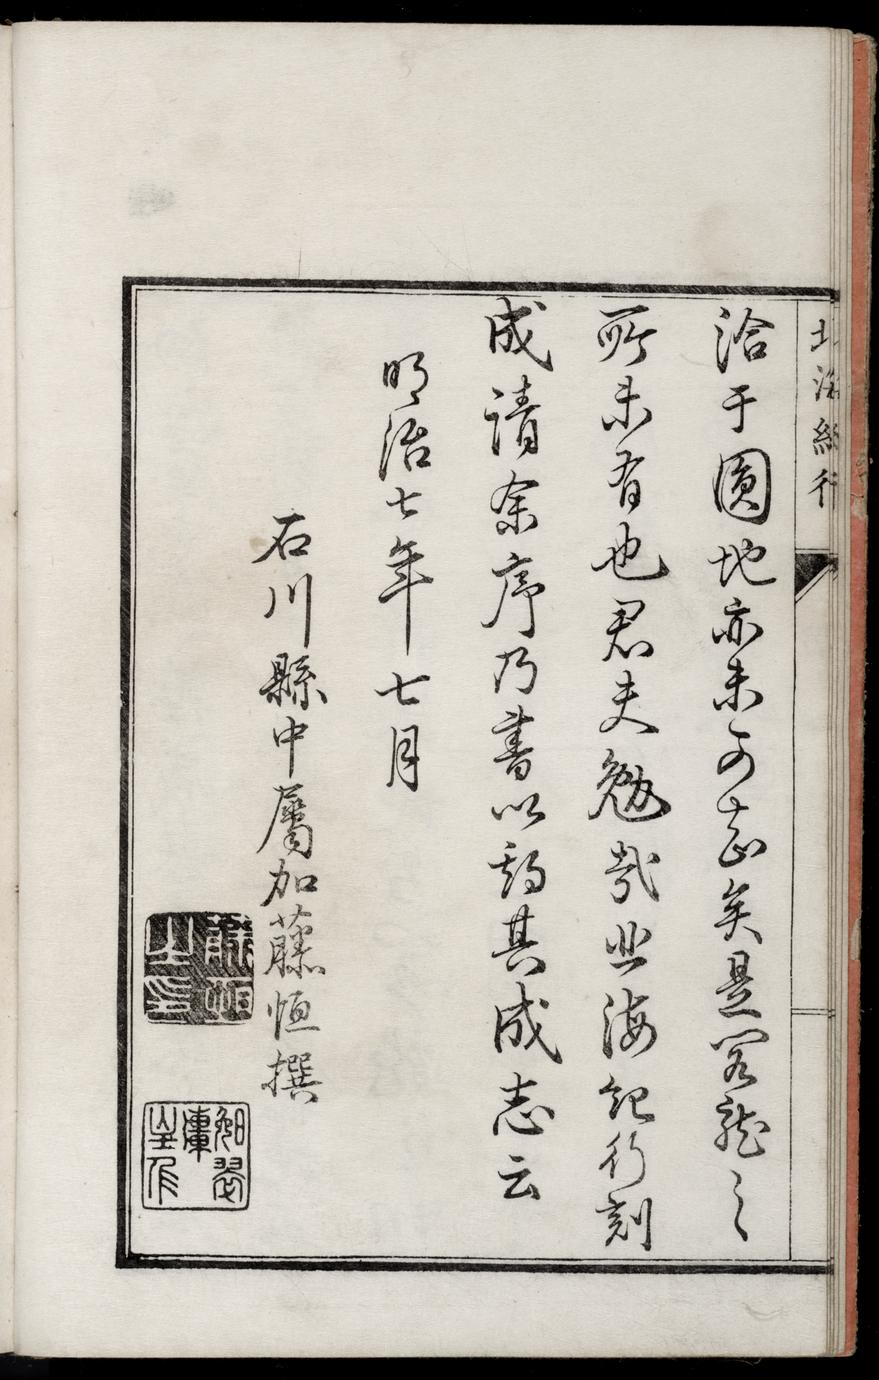 北海紀行
洽于圓地亦未可知矣是閣龍之
所未有也君夫勉哉北海紀行刻
成請余序乃書以其成志云
明治七年七月
石川縣中屬加藤恒撰
藤恒之印